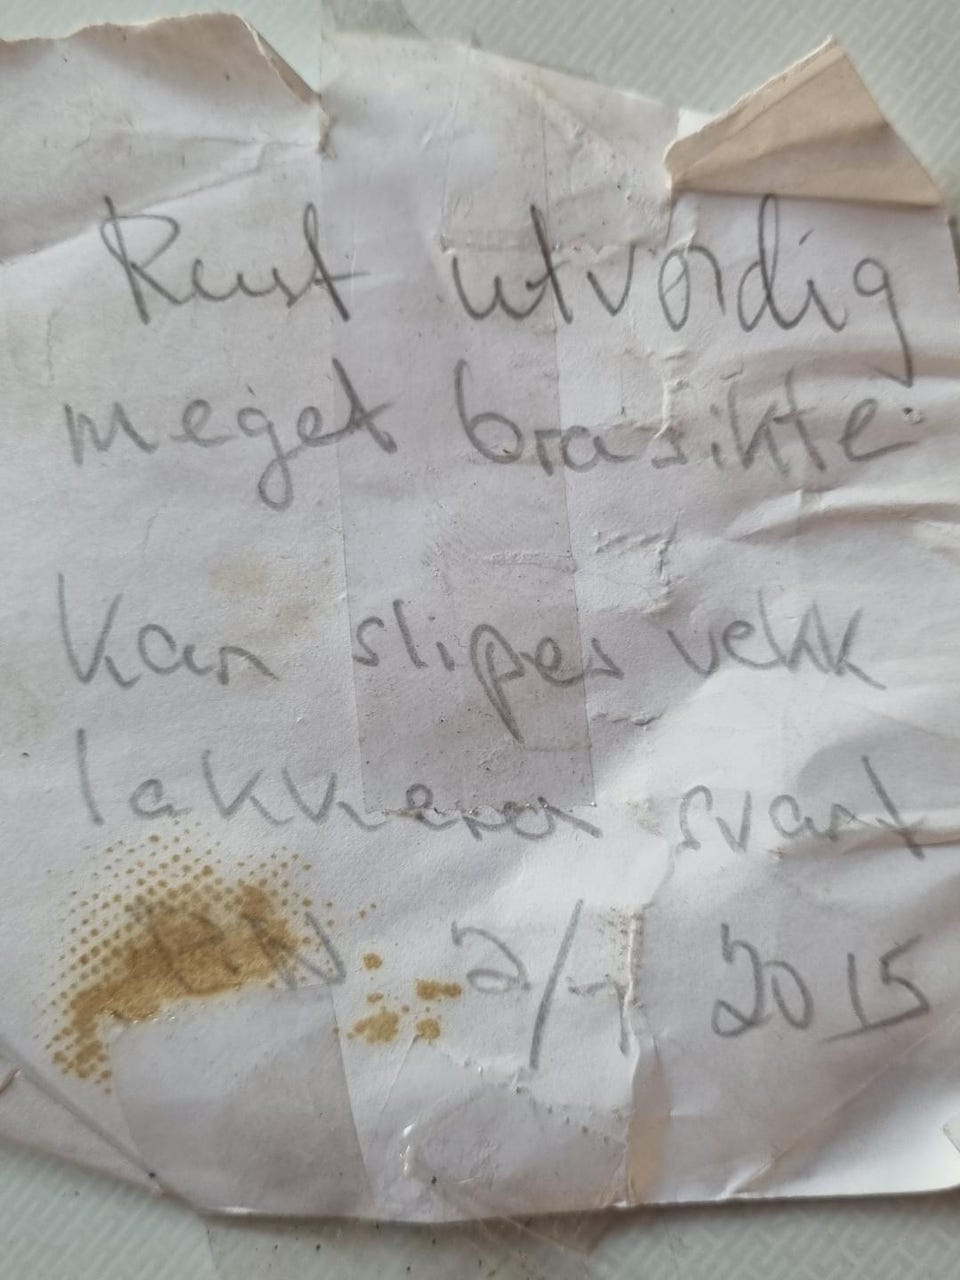 Rust utvordig
meget bra sikte
kan slipes vekk
lakkeres svart
2/1 2015